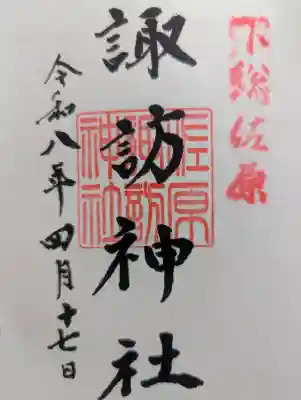 下総佐原
諏訪神社
佐原
諏訪
神社
令和八年四月十七日